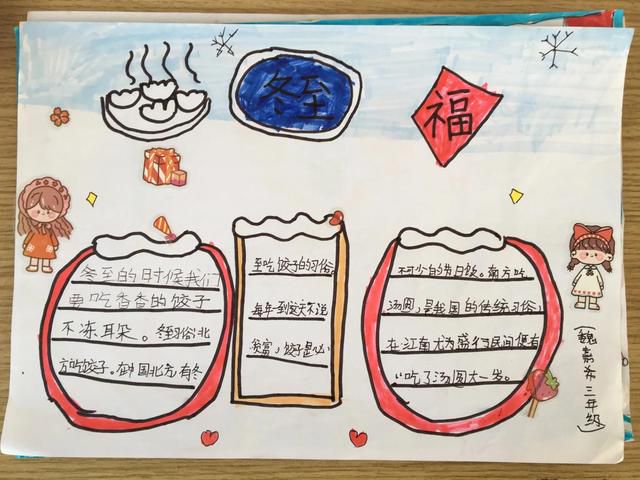 冬至
福
冬至的时候我们
要吃香香的饺子
不冻耳朵。冬至习俗北
方吃饺子。我国北方有冬
至吃饺子的习俗,
每年一到这天不论
贫富,饺子是必
不可少的节日饭。南方吃
汤圆,是我国的传统习俗,
在江南尤为盛行民间便有
“吃了汤圆大一岁。
魏嘉
三年级